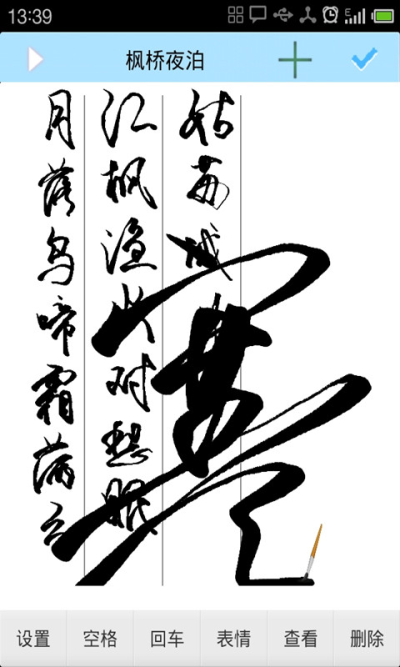 13:39
枫桥夜泊
月落乌啼霜满天
江枫渔火对愁眠
姑苏城
设置 空格 回车 表情 查看 删除